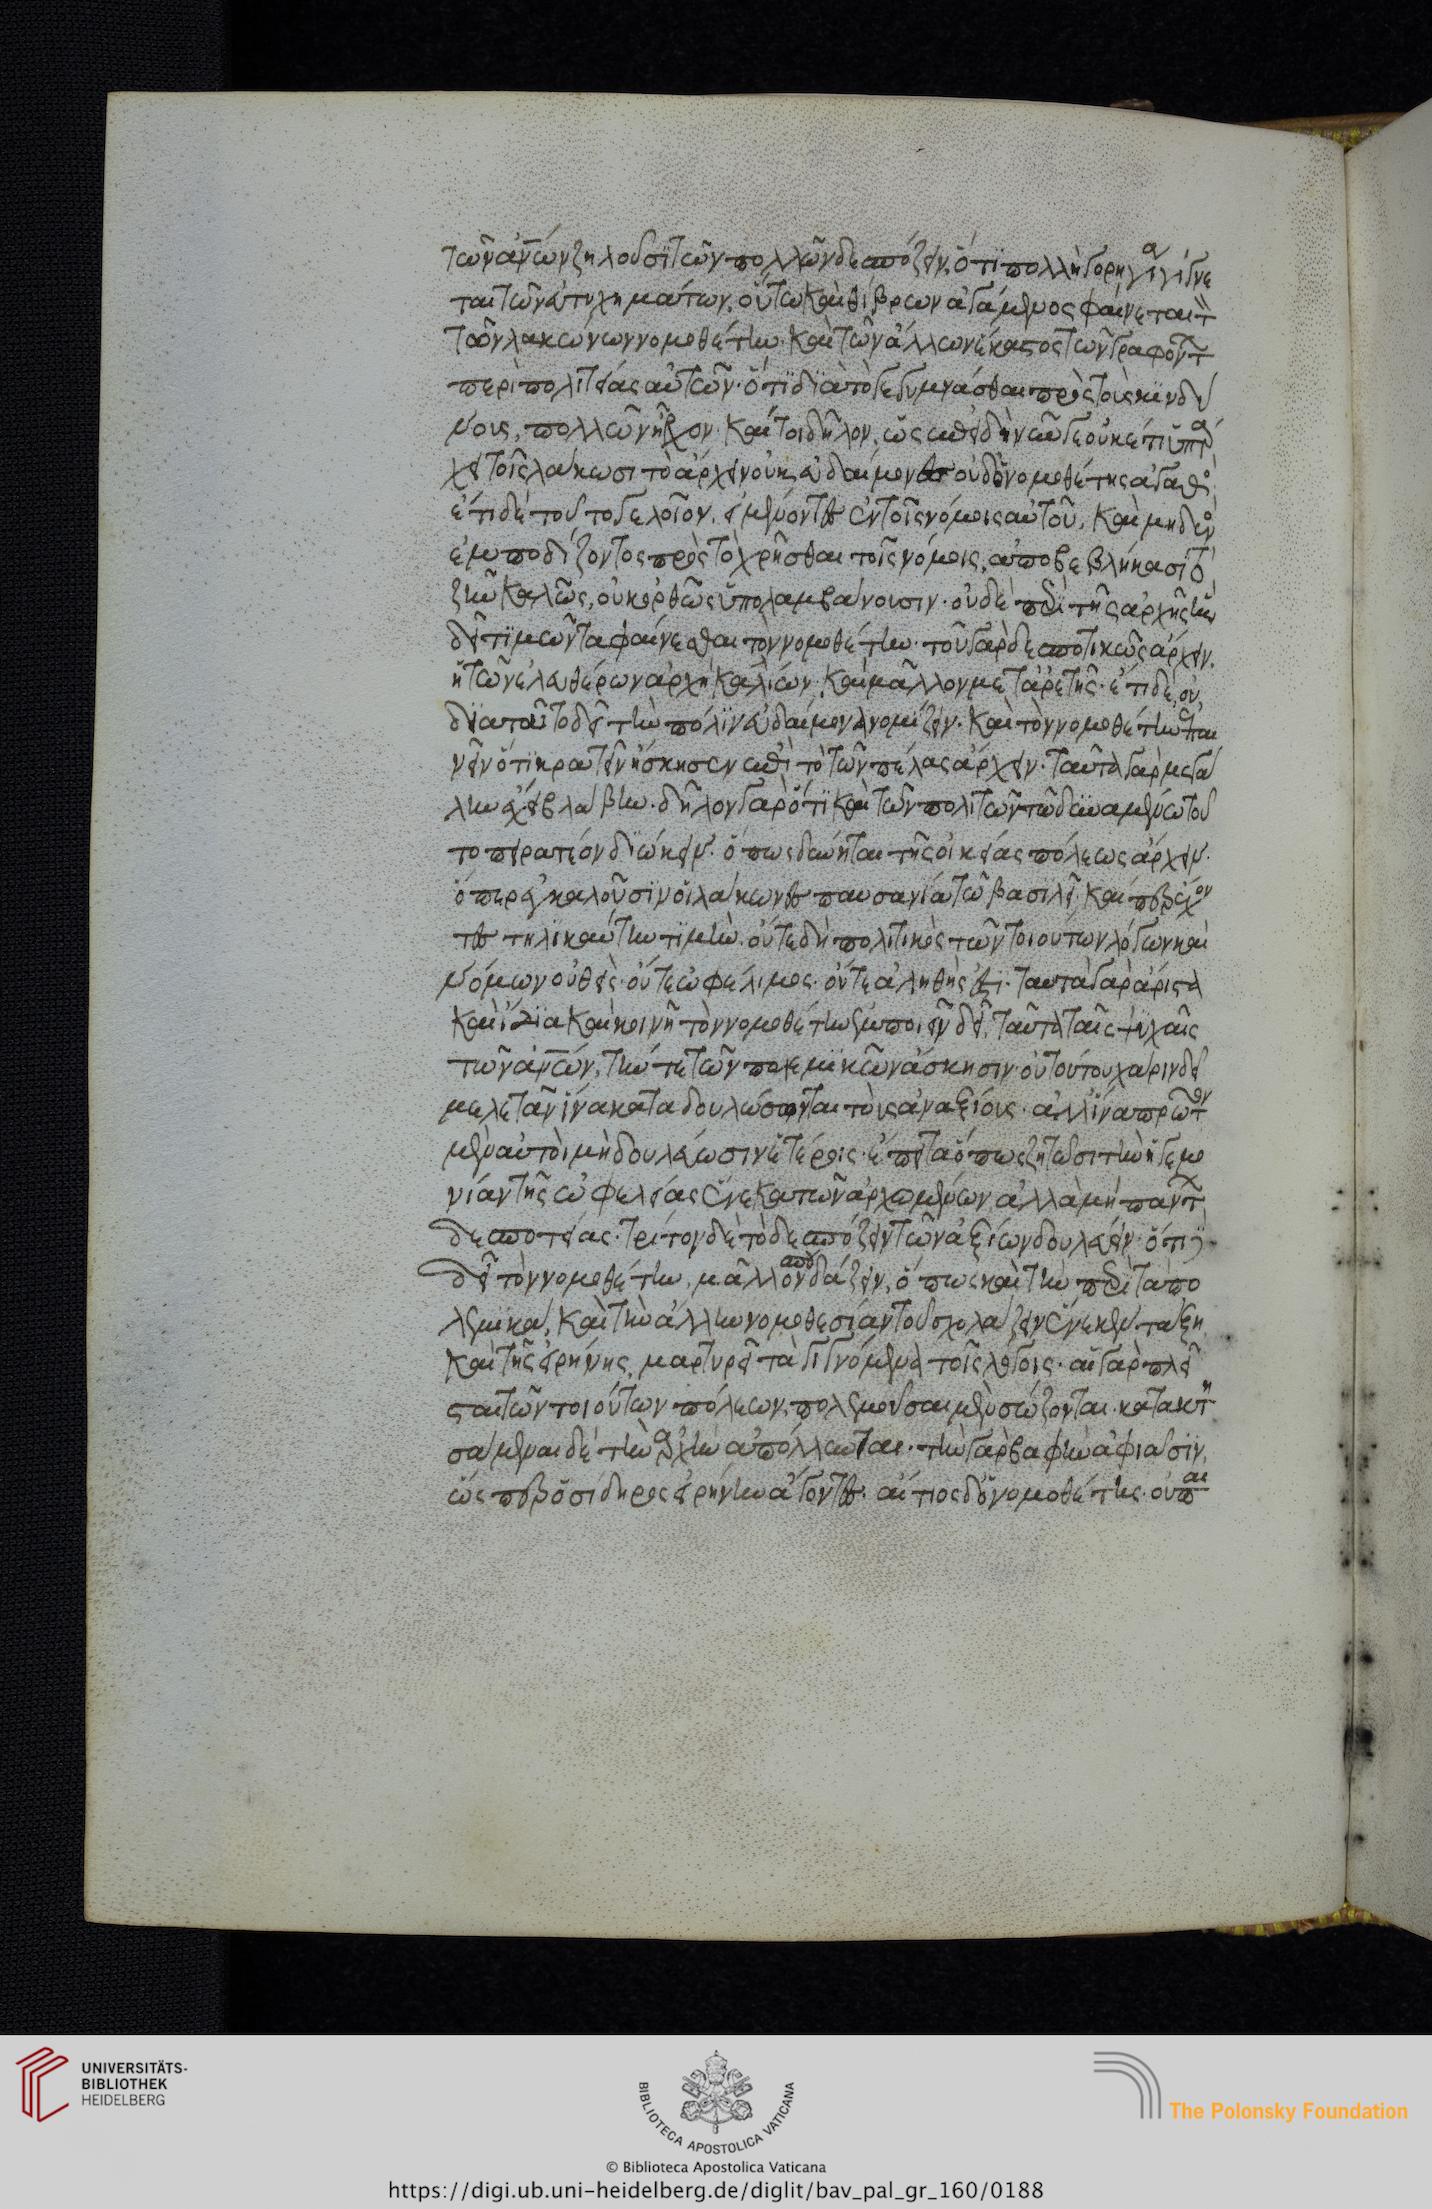 τῶν ἀνων ζηλοῦσι τῶν πολλῶν δεσπόζειν, ὅτι πολλὴ χορηγία γίγνε
ται τῶν εὐτυχημάτων, οὕτω καὶ θίβρων ἀγάμενος φαίνεται τ
τῶν λακώνων νομοθέτην· καὶ τῶν ἄλλων ἕκαστος τῶν γραφόντ
περὶ πολιτείας αὐτῶν· ὅτι διὰ τὸ γεγυμνάσθαι πρὸς τοὺς κινδύ
νους, πολλῶν ἦρχον· καίτοι δῆλον, ὡς ἐπειδὴ νῦν γε οὐκέτι ὑπάρ
χει τοῖς λάκωσι τὸ ἄρχειν οὐκ εὐδαίμονες οὐδ' ὁ νομοθέτης ἀγαθὸ
ἔτι δὲ τοῦτο γελοῖον, εἰ μένοντες ἐν τοῖς νόμοις αὐτοῦ, καὶ μηδενὸ
ἐμποδίζοντος πρὸς τὸ χρῆσθαι τοῖς νόμοις, ἀποβεβλήκασι τὸ
ζῆν καλῶς, οὐκ ὀρθῶς ὑπολαμβάνουσιν· οὐδὲ περὶ τῆς ἀρχῆς ἣν
δεῖ τιμῶντα φαίνεσθαι τὸν νομοθέτην· τοῦ γὰρ δεσποτικῶς ἄρχειν,
ἡ τῶν ἐλευθέρων ἀρχὴ καλλίων καὶ μᾶλλον μετ' ἀρετῆς· ἔτι δὲ, οὐ
διὰ τοῦτο δεῖ τὴν πόλιν εὐδαίμονα νομίζειν· καὶ τὸν νομοθέτην ἐπαι
νεῖν ὅτι κρατεῖν ἤσκησεν ἐπὶ τὸ τῶν πέλας ἄρχειν· ταῦτα γὰρ μεγά
λην ἔχει βλάβην· δῆλον γὰρ ὅτι καὶ τῶν πολιτῶν τῶ δυναμένω τοῦ
το πειρατέον διώκειν· ὅπως δύνηται τῆς οἰκείας πόλεως ἄρχειν·
ὅπερ ἐγκαλοῦσιν οἱ λάκωνες παυσανία τῶ βασιλεῖ, καίπερ ἔχον
τες τηλικαύτην τιμὴν· οὔτε δὴ πολιτικὸς τῶν τοιούτων λόγων καὶ
νόμων οὐθεὶς· οὔτε ὠφέλιμος· οὔτε ἀληθὴς ἐστι· ταυτὰ γὰρ ἄριστα
καὶ ἰδία καὶ κοινῆ τὸν νομοθέτην ἐμποιεῖν δεῖ, ταῦτα ταῖς ψυχαῖς
τῶν ἀνων, τήν τε τῶν πολεμικῶν ἄσκησιν· οὐ τούτου χάριν δεῖ
μελετᾶν ἵνα καταδουλώσωνται τοὺς ἀναξίους· ἀλλ' ἵνα πρῶτον
μὲν αὐτοὶ μὴ δουλεύωσιν ἑτέροις· ἔπειτα ὅπως ζητῶσι τὴν ἡγεμο
νίαν τῆς ὠφελείας ἕνεκα τῶν ἀρχομένων ἀλλὰ μὴ πάντ
δεσποτείας· τρίτον δὲ τὸ δεσπόζειν τῶν ἀξίων δουλεύειν· ὅτι
δεῖ τὸν νομοθέτην, μᾶλλον σπουδάζειν, ὅπως καὶ τὴν περὶ τὰ πο
λεμικὰ, καὶ τὴν ἄλλην νομοθεσίαν τοῦ σχολάζειν ἕνεκεν τάξη
καὶ τῆς εἰρήνης, μαρτυρεῖ τὰ γιγνόμενα τοῖς λόγοις· αἱ γὰρ πλεῖ
σται τῶν τοιούτων πόλεων, πολεμοῦσαι μὲν σώζονται· κατακτη
σάμεναι δὲ τὴν ἀρχὴν ἀπόλλυνται· τὴν γὰρ βαφὴν ἀφιᾶσιν,
ὥσπερ ὁ σίδηρος εἰρήνην ἄγοντες· αἴτιος δ' ὁ νομοθέτης· οὐ παι
UNIVERSITÄTS-
BIBLIOTHEK
HEIDELBERG
BIBLIOTECA APOSTOLICA VATICANA
The Polonsky Foundation
© Biblioteca Apostolica Vaticana
https://digi.ub.uni-heidelberg.de/diglit/bav_pal_gr_160/0188